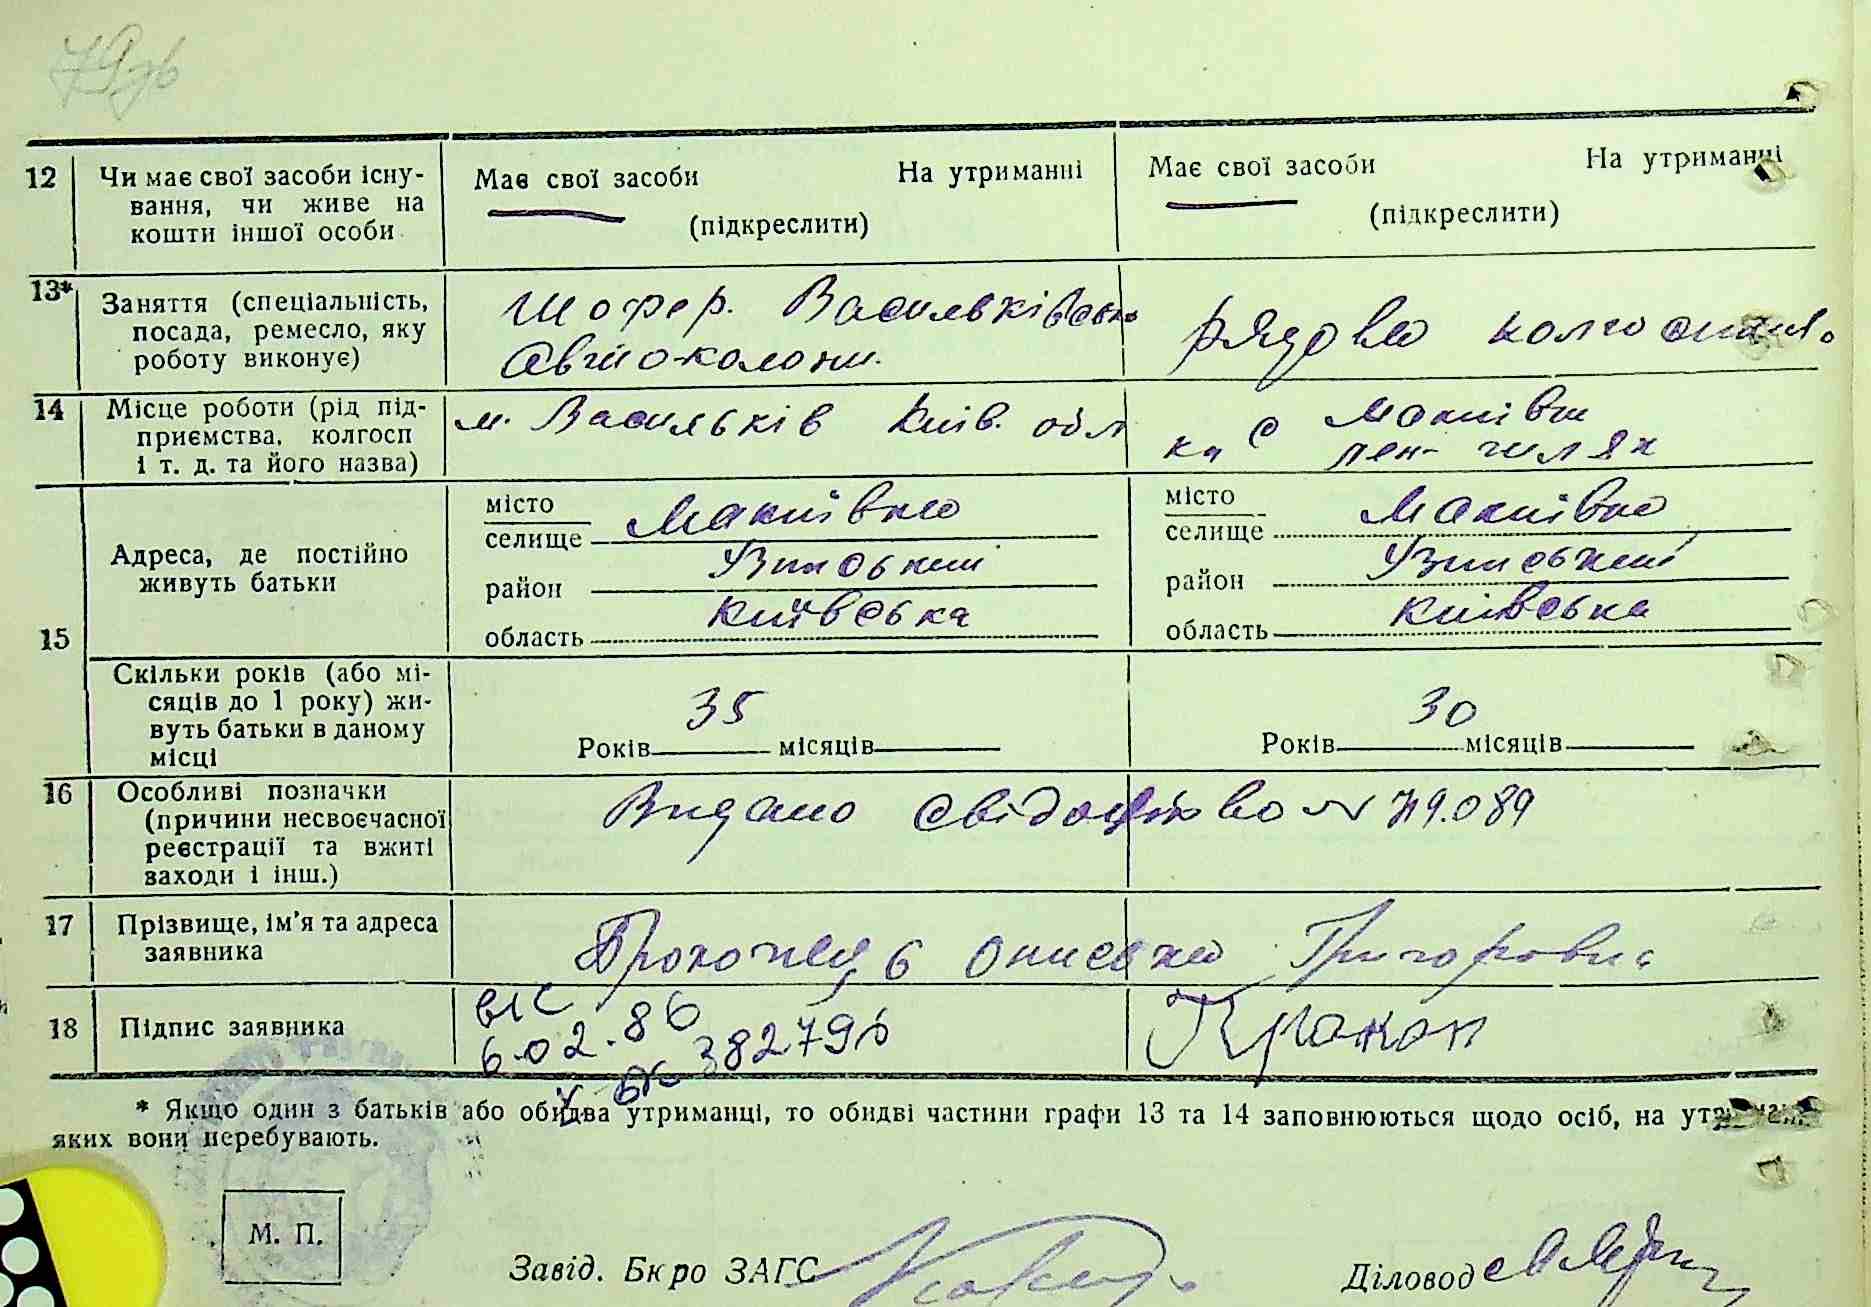 79зв
12 Чи має свої засоби існу- Має свої засоби На утриманні Має свої засоби На утриманні
вання, чи живе на (підкреслити) (підкреслити)
кошти іншої особи
13* Заняття (спеціальність, Шофер. Васильківсько рядова колгоспниця
посада, ремесло, яку Автоколони.
роботу виконує)
14 Місце роботи (рід під- м. Васильків Київ. обл к-п с Макіївки
приємства, колгосп лен- шлях
і т. д. та його назва)
15 Адреса, де постійно живуть батьки
місто Макіївка місто Макіївка
селище селище
район Узинський район Узинський
область Київська область Київська
Скільки років (або мі- 35 30
сяців до 1 року) жи-
вуть батьки в даному Років місяців Років місяців
місці
16 Особливі позначки Видано свідоцтво №
(причини несвоєчасної
реєстрації та вжиті
заходи і інш.)
17 Прізвище, ім'я та адреса Григоровна
заявника
18 Підпис заявника 6.02.86 Прокоп
382796
* Якщо один з батьків або обидва утриманці, то обидві частини графи 13 та 14 заповнюються щодо осіб, на
яких вони перебувають.
М. П.
Завід. Бюро ЗАГС Діловод